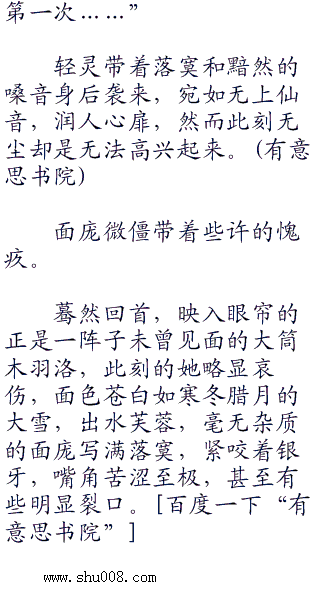 第一次……”
轻灵带着落寞和黯然的
嗓音身后袭来，宛如无上仙
音，润人心扉，然而此刻无
尘却是无法高兴起来。(有意
思书院)
面庞微僵带着些许的愧
疚。
蓦然回首，映入眼帘的
正是一阵子未曾见面的大筒
木羽洛，此刻的她略显哀
伤，面色苍白如寒冬腊月的
大雪，出水芙蓉，毫无杂质
的面庞写满落寞，紧咬着银
牙，嘴角苦涩至极，甚至有
些明显裂口。[百度一下“有
意思书院”]
www.shu008.com